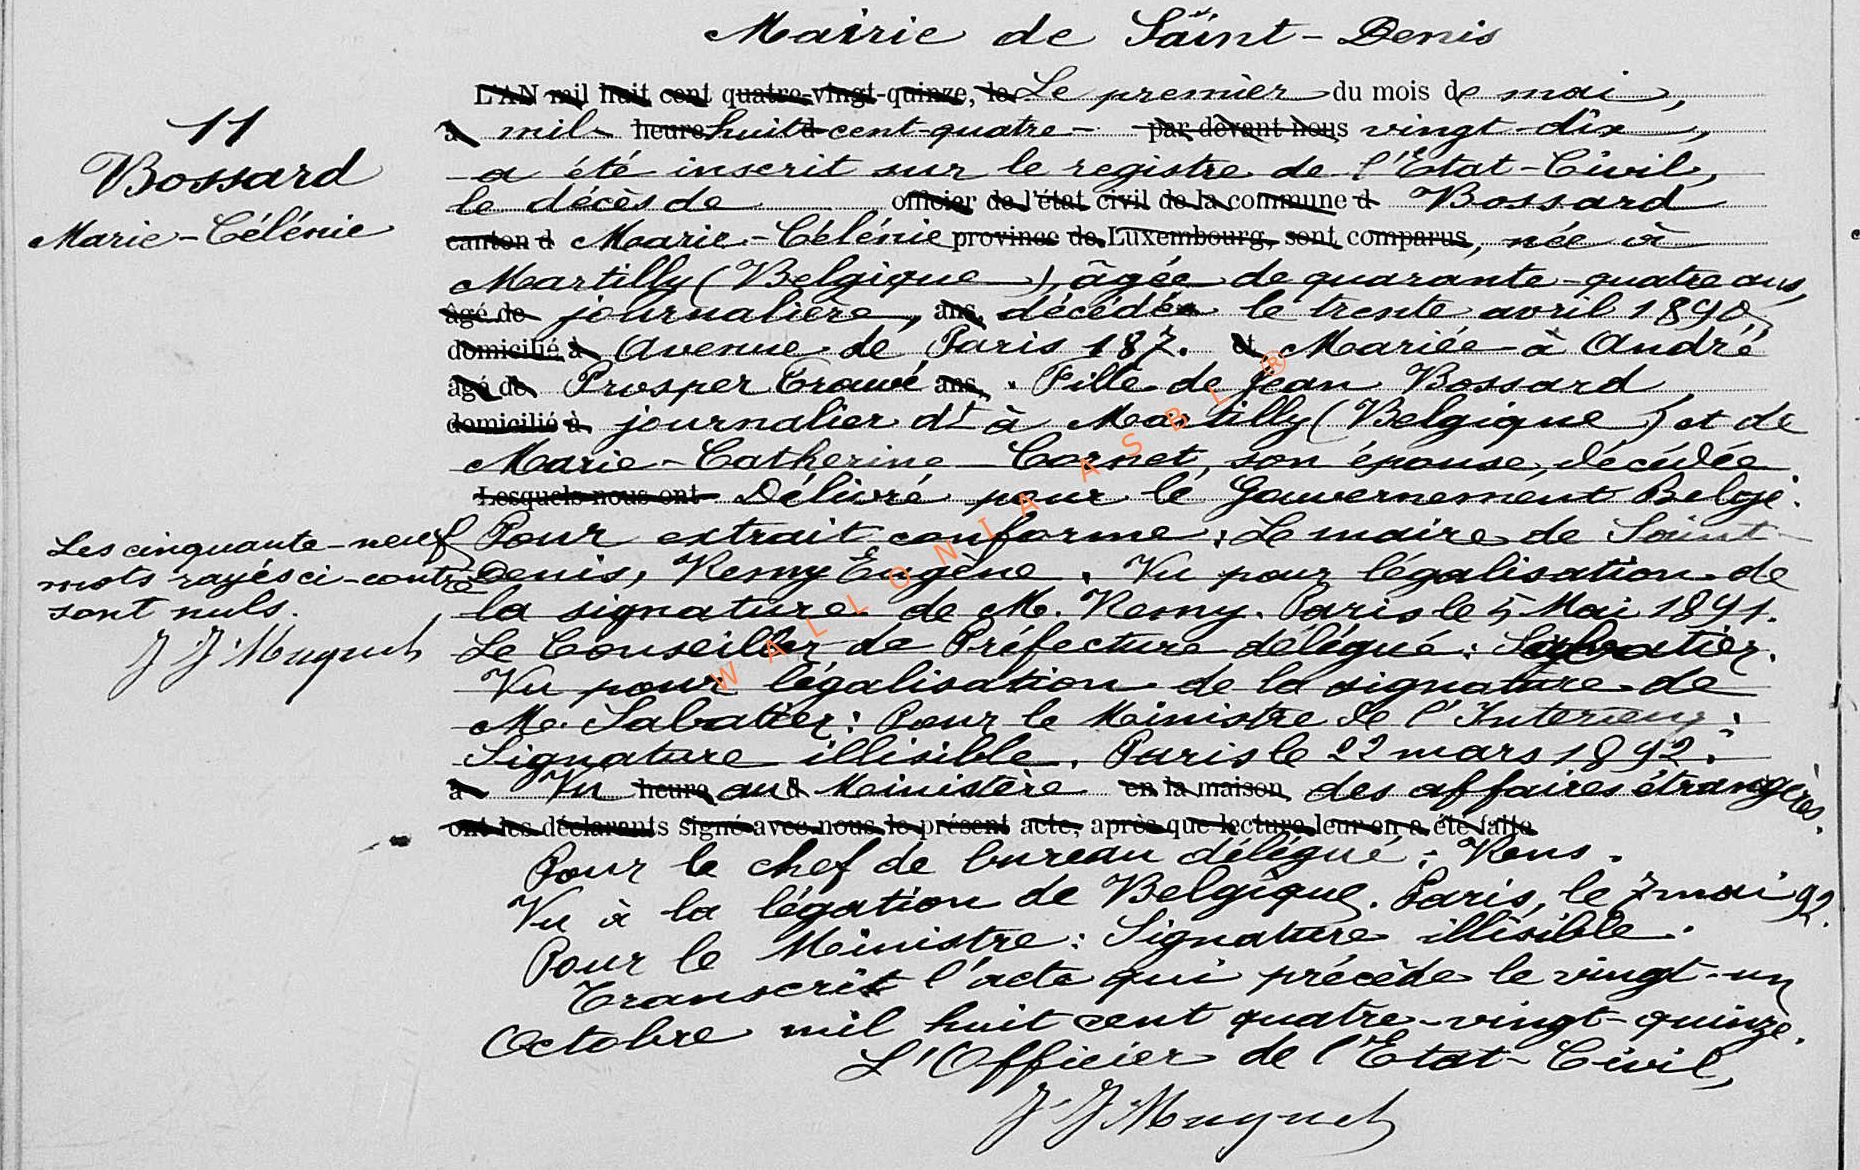 Mairie de Saint-Denis
L'AN mil huit cent quatre-vingt-quinze, le Le premier du mois de mai,
11
à mil- heure huit d cent-quatre- par devant nous vingt-dix,
Bossard
a été inscrit sur le registre de l'Etat-Civil,
le décès de officier de l'état civil de la commune d Bossard
Marie-Célénie
canton d Marie-Célénie province de Luxembourg, sont comparus, née à
Martilly (Belgique), âgée de quarante-quatre ans,
âgé de journalière, ans, décédée le trente avril 1890,
domicilié à Avenue de Paris 187. et Mariée à André
âgé de Prosper Trouvé ans, . Fille de Jean Bossard
domicilié à journalier dt à Martilly (Belgique) et de
Marie-Catherine Cornet, son épouse, décédée.
Lesquels nous ont Délivré pour le Gouvernement Belge.
Les cinquante-neuf
mots rayés ci-contre
sont nuls.
J J Muguet
Pour extrait conforme: Le maire de Saint-
Denis, Remy Eugène. Vu pour légalisation de
la signature de M. Remy. Paris le 5 Mai 1891.
Le Conseiller de Préfecture délégué: Sabatier.
Vu pour légalisation de la signature de
M. Sabatier: Pour le Ministre de l'Interieur:
Signature illisible. Paris le 22 mars 1892.
à Vu heure au d Ministère en la maison des affaires étrangères.
ont les déclarants signé avec nous le présent acte, après que lecture leur en a été faite
Pour le chef de bureau délégué: Rens.
Vu à la légation de Belgique. Paris, le 7 mai 92.
Pour le Ministre: Signature illisible.
Transcrit l'acte qui précède le vingt-un
Octobre mil huit cent quatre-vingt-quinze.
L'Officier de l'Etat-Civil,
J J Muguet
WALLONIA ASBL ®